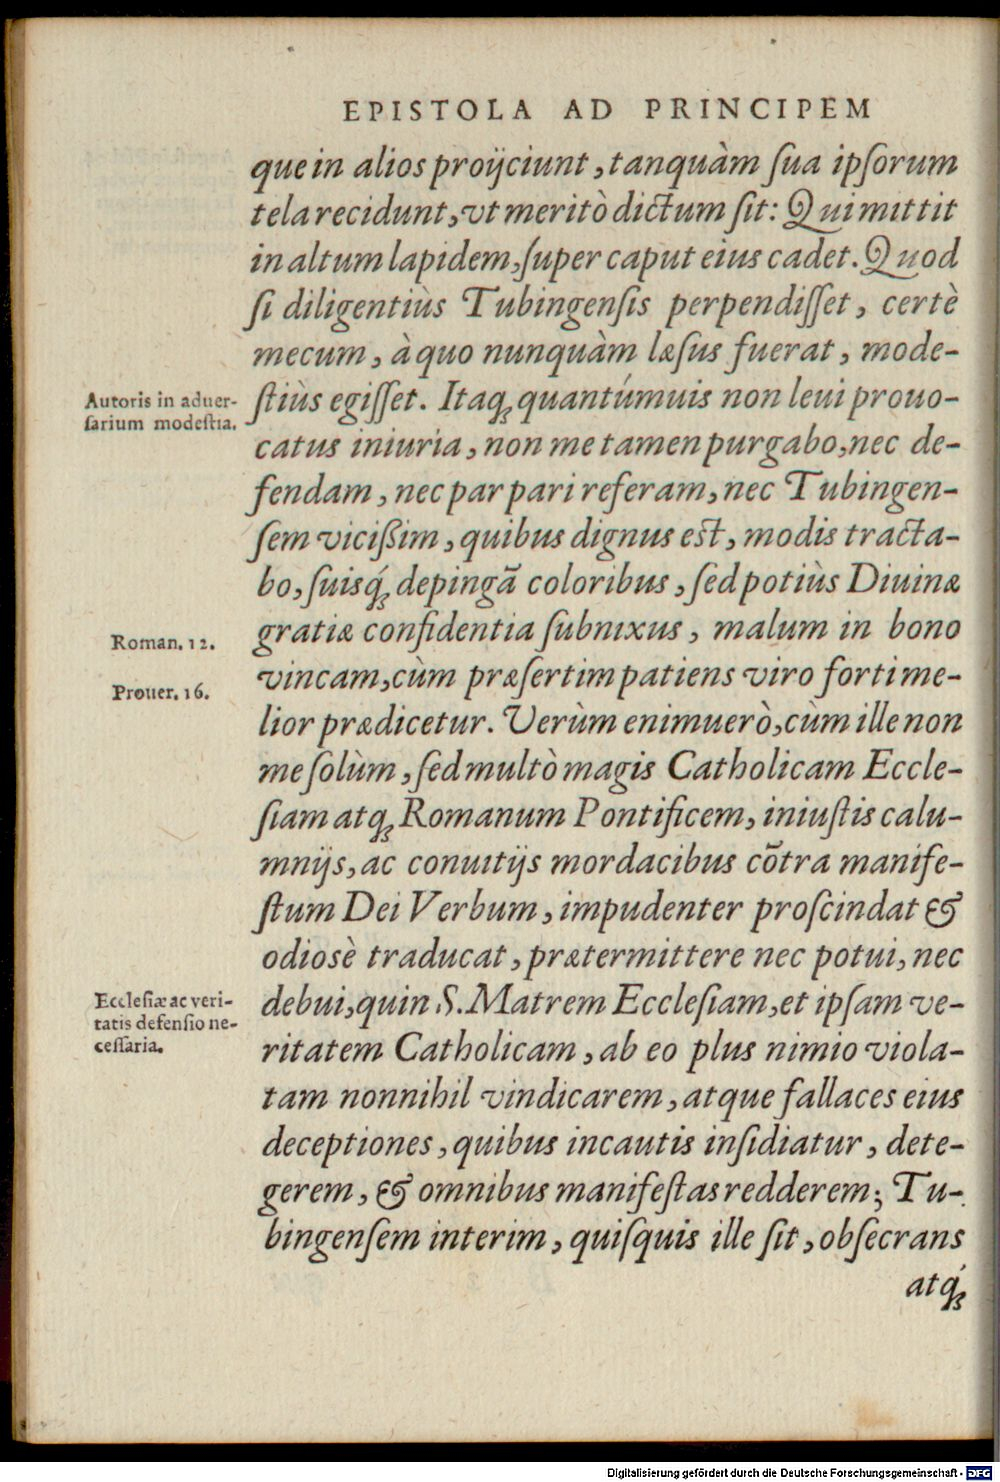 EPISTOLA AD PRINCIPEM
que in alios proijciunt, tanquàm ſua ipſorum
tela recidunt, vt meritò dictum ſit: Qui mittit
in altum lapidem, ſuper caput eius cadet. Quod
ſi diligentiùs Tubingenſis perpendiſſet, certè
mecum, à quo nunquàm læſus fuerat, mode-
Autoris in aduer-
ſarium modeſtia.
ſtiùs egiſſet. Itaqꝫ quantúmuis non leui prouo-
catus iniuria, non me tamen purgabo, nec de-
fendam, nec par pari referam, nec Tubingen-
ſem viciſsim, quibus dignus eſt, modis tracta-
bo, ſuisq́ꝫ depingã coloribus, ſed potiùs Diuinæ
Roman. 12.
gratiæ confidentia ſubnixus, malum in bono
Prouer. 16.
vincam, cùm præſertim patiens viro forti me-
lior prædicetur. Verùm enimuerò, cùm ille non
me ſolùm, ſed multò magis Catholicam Eccle-
ſiam atqꝫ Romanum Pontificem, iniuſtis calu-
mnijs, ac conuitijs mordacibus cõtra manife-
ſtum Dei Verbum, impudenter proſcindat &
odiosè traducat, prætermittere nec potui, nec
Eccleſiæ ac veri-
tatis defenſio ne-
ceſſaria.
debui, quin S. Matrem Eccleſiam, et ipſam ve-
ritatem Catholicam, ab eo plus nimio viola-
tam nonnihil vindicarem, atque fallaces eius
deceptiones, quibus incautis inſidiatur, dete-
gerem, & omnibus manifeſtas redderem; Tu-
bingenſem interim, quiſquis ille ſit, obſecrans
atq́ꝫ
Digitalisierung gefördert durch die Deutsche Forschungsgemeinschaft - DFG